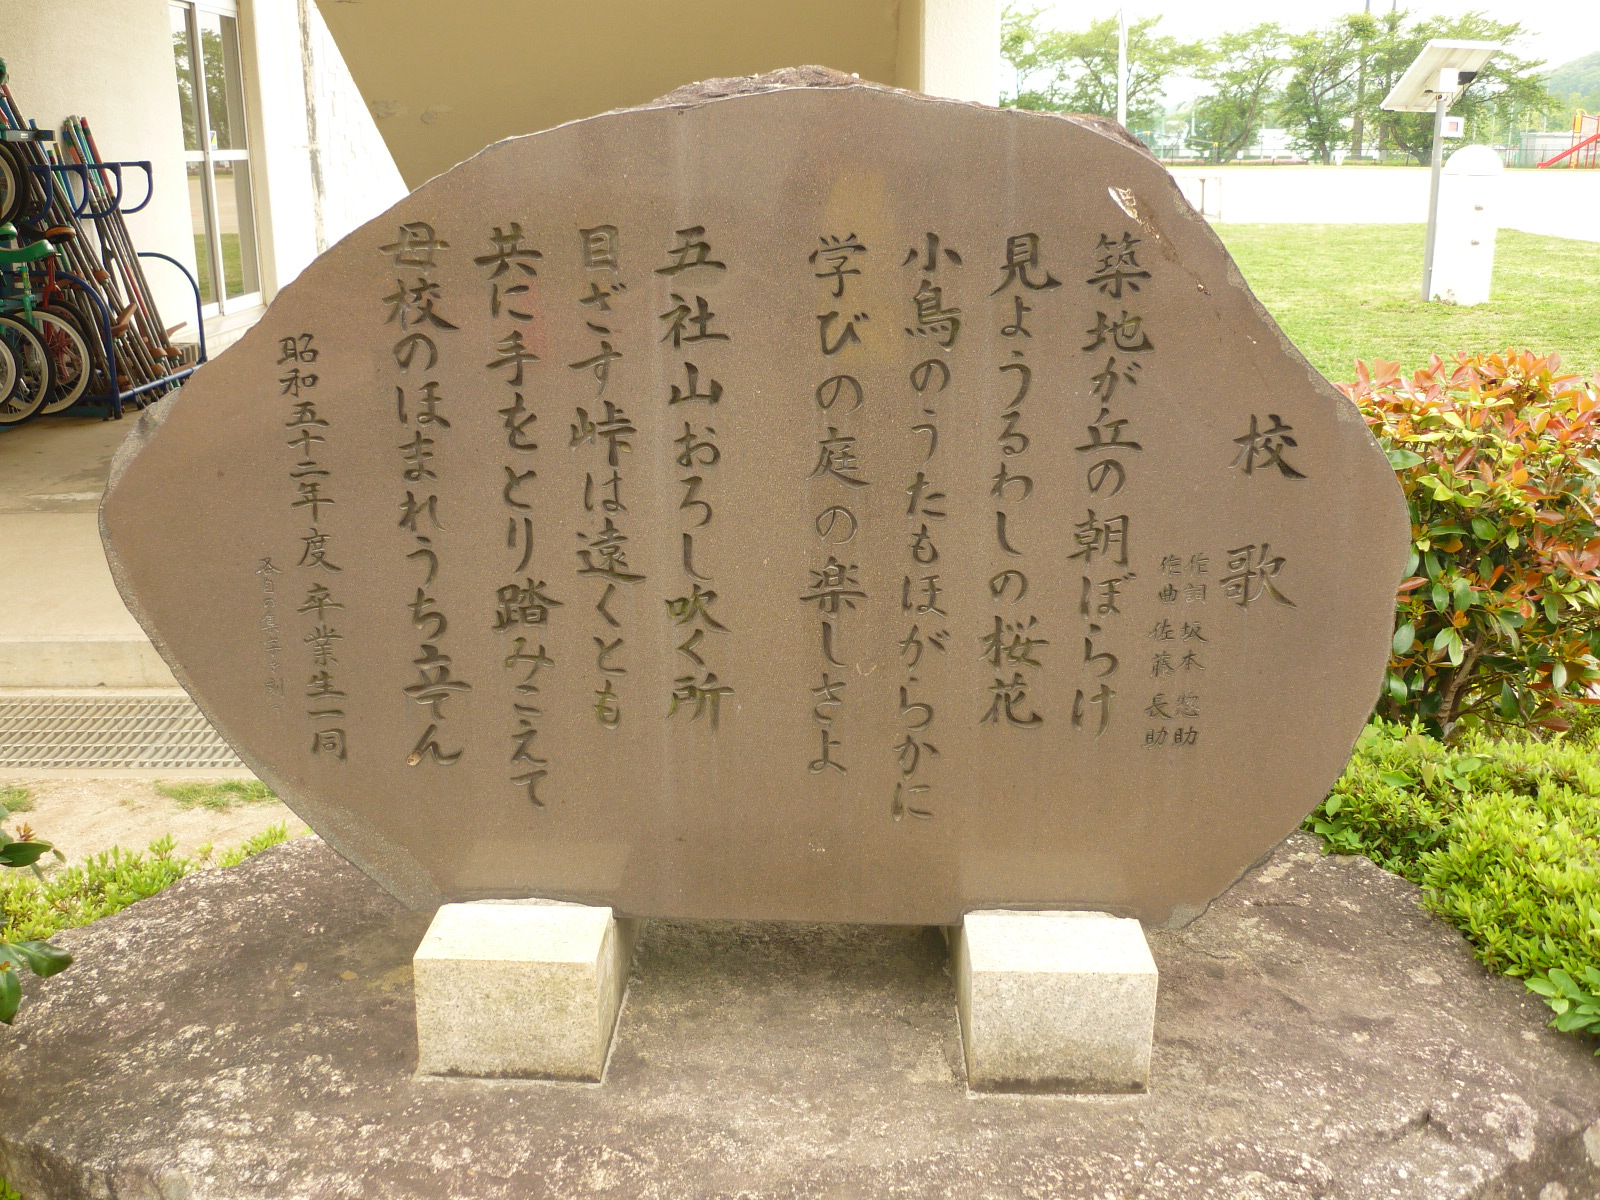 校歌
作詞 坂本惣助
作曲 佐藤長助
築地が丘の朝ぼらけ
見ようるわしの桜花
小鳥のうたもほがらかに
学びの庭の楽しさよ
五社山おろし吹く所
目ざす峠は遠くとも
共に手をとり踏みこえて
母校のほまれうち立てん
昭和五十二年度 卒業生一同